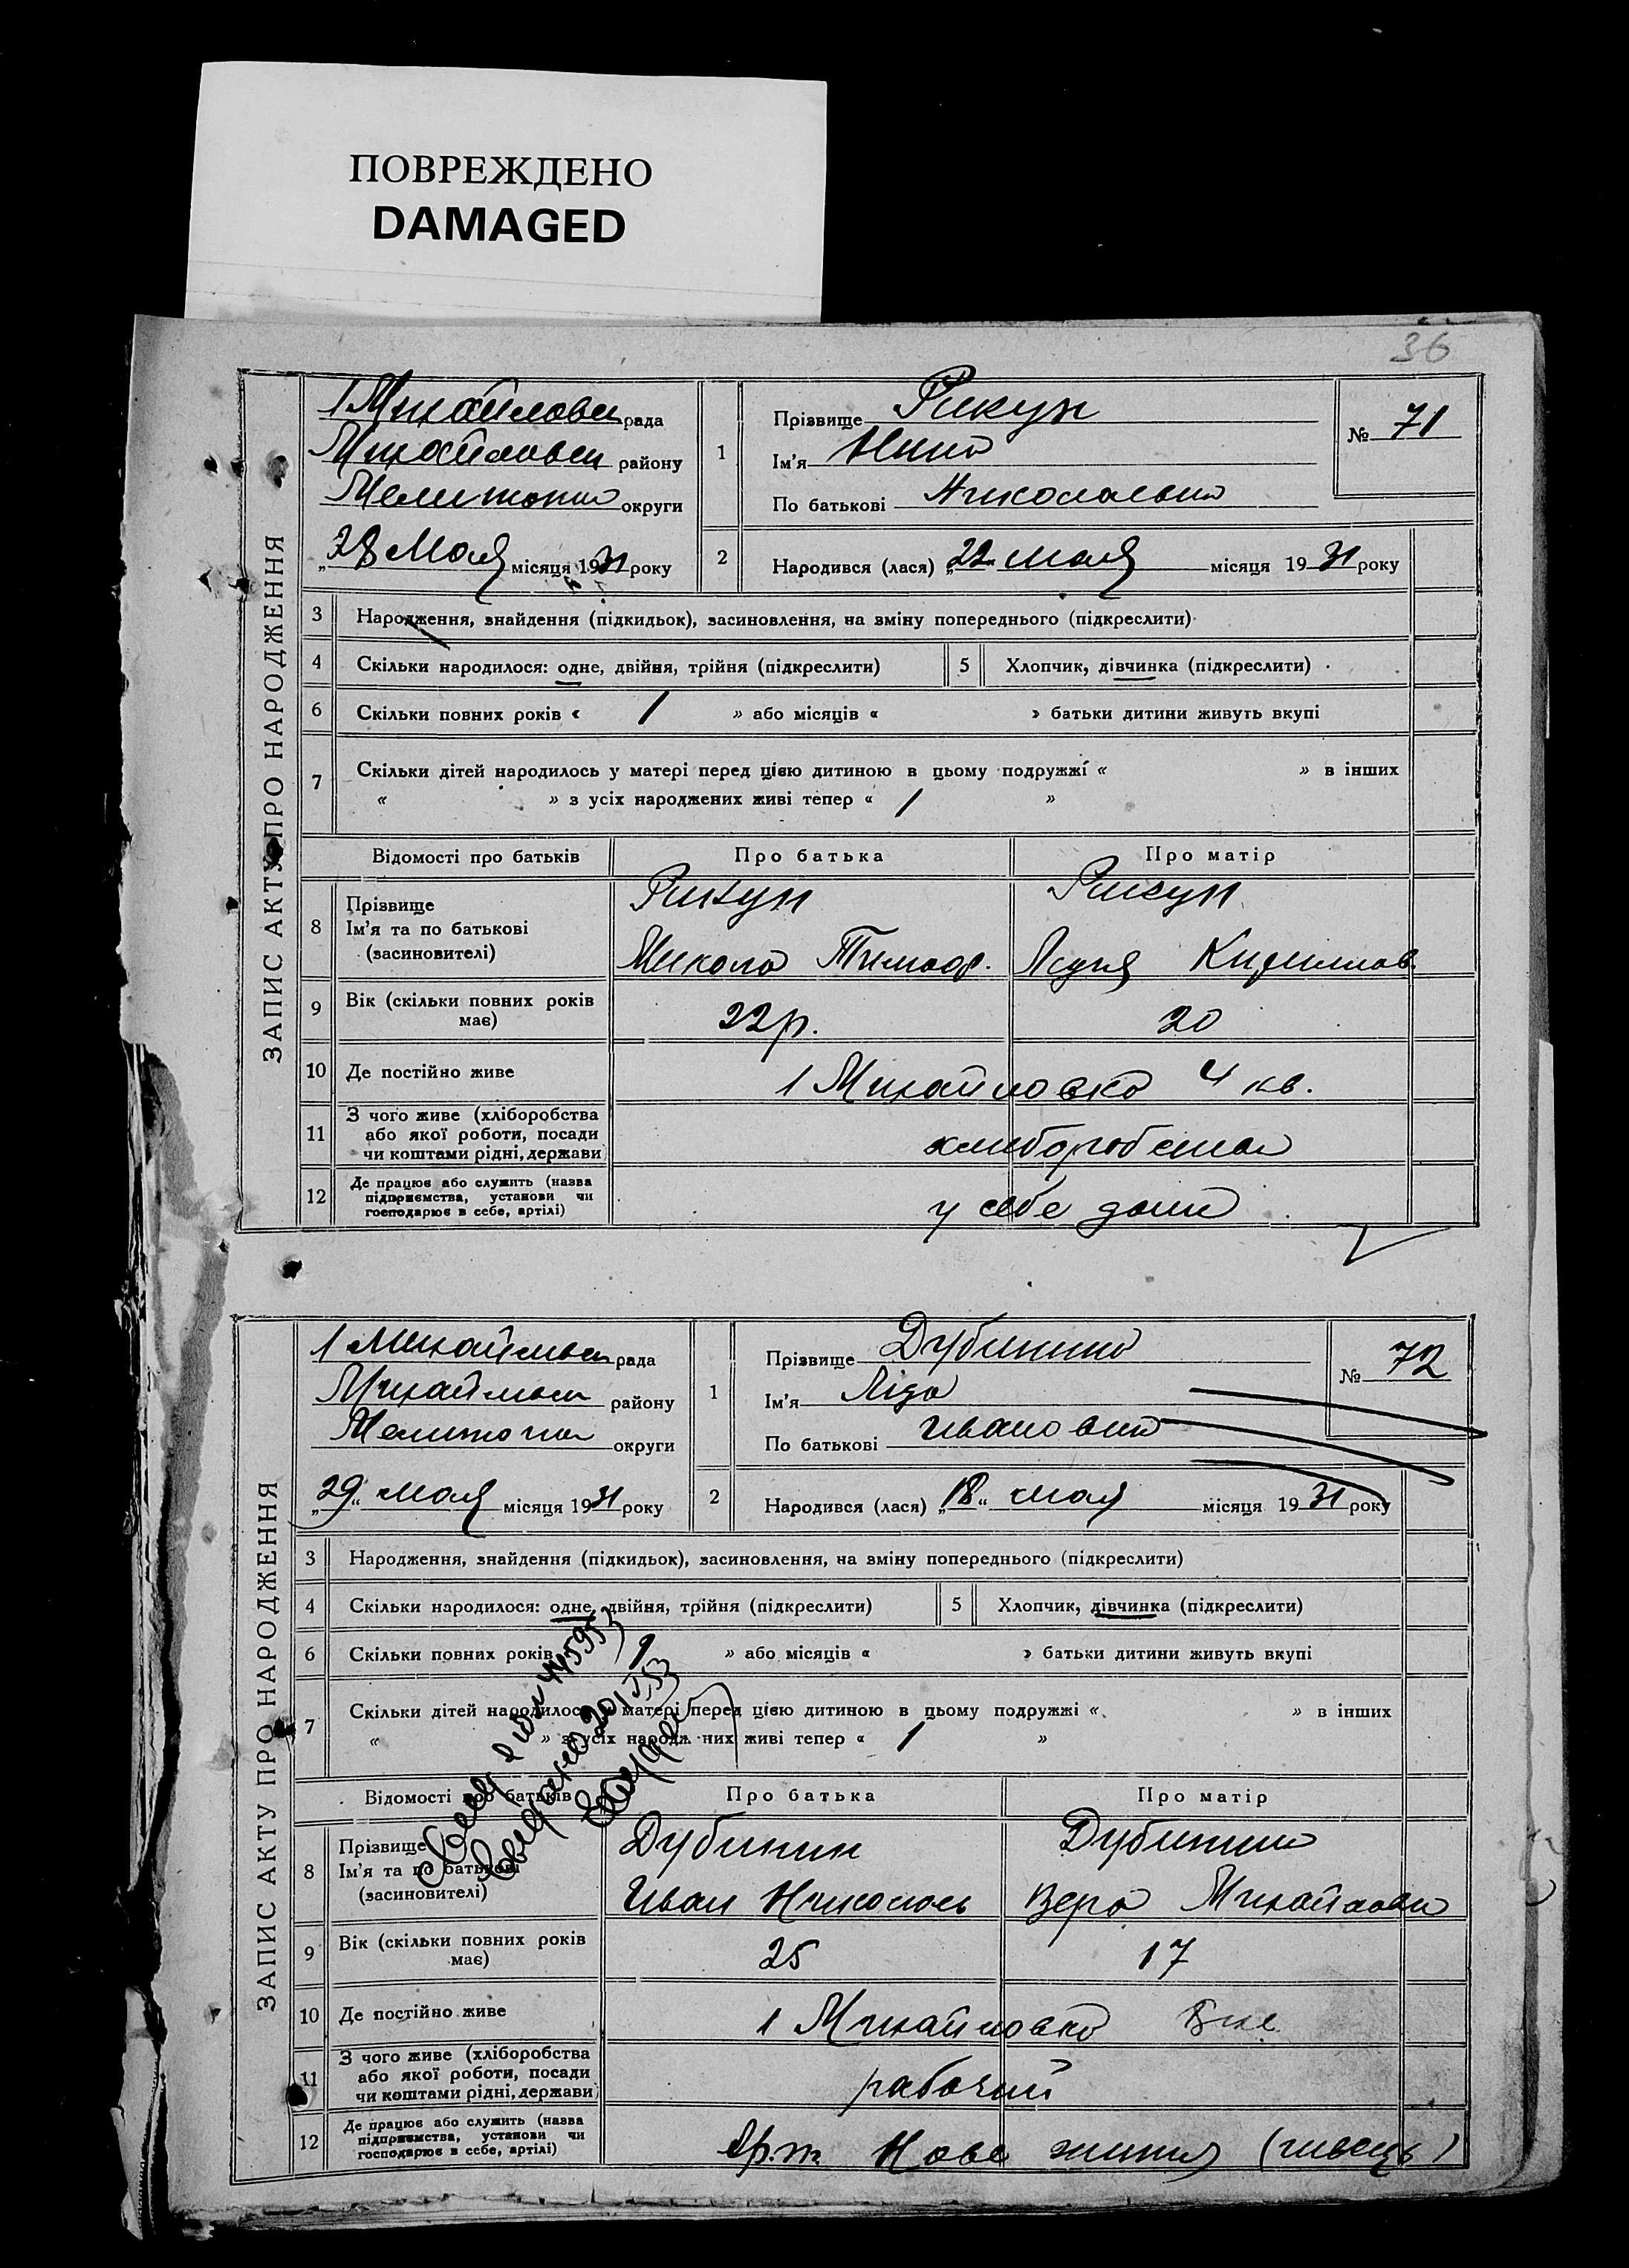 ПОВРЕЖДЕНО
DAMAGED
36
ЗАПИС АКТУ ПРО НАРОДЖЕННЯ
1 Михайловськ рада
Михайловськ району
Мелитопол округи
„28 Мая місяця 1931 року
1
Прізвище Рикун
Ім'я Нина
По батькові Николаевна
№ 71
2
Народився (лася) „22“ мая місяця 1931 року
3 Народження, знайдення (підкидьок), засиновлення, на зміну попереднього (підкреслити)
4 Скільки народилося: одне, двійня, трійня (підкреслити) 5 Хлопчик, дівчинка (підкреслити)
6 Скільки повних років « 1 » або місяців « » батьки дитини живуть вкупі
7 Скільки дітей народилось у матері перед цією дитиною в цьому подружжі « » в інших
« » з усіх народжених живі тепер « 1 »
Відомості про батьків Про батька Про матір
8 Прізвище
Ім'я та по батькові
(засиновителі)
Рикун
Микола Тимоф.
Рикун
Кирилов.
9 Вік (скільки повних років
має)
22 р. 20
10 Де постійно живе 1 Михайловка 4 кв.
11 З чого живе (хліборобства
або якої роботи, посади
чи коштами рідні, держави)
12 Де працює або служить (назва
підприємства, установи чи
господарює в себе, артілі)
у себе дома
ЗАПИС АКТУ ПРО НАРОДЖЕННЯ
1 Михайловськ рада
Михайловськ району
Мелитопол округи
„29“ мая місяця 1931 року
1
Прізвище Дубинина
Ім'я Ліда
По батькові Ивановна
№ 72
2
Народився (лася) „18“ мая місяця 1931 року
3 Народження, знайдення (підкидьок), засиновлення, на зміну попереднього (підкреслити)
4 Скільки народилося: одне, двійня, трійня (підкреслити) 5 Хлопчик, дівчинка (підкреслити)
6 Скільки повних років 1 » або місяців « » батьки дитини живуть вкупі
7 Скільки дітей народилось у матері перед цією дитиною в цьому подружжі « » в інших
« » з усіх народжених живі тепер « 1 »
Відомості про батьків Про батька Про матір
8 Прізвище
Ім'я та по батькові
(засиновителі)
Дубинин
Иван Николаев
Дубинина
Вера Михайловн
9 Вік (скільки повних років
має)
25 17
10 Де постійно живе 1 Михайловка
11 З чого живе (хліборобства
або якої роботи, посади
чи коштами рідні, держави)
рабочий
12 Де працює або служить (назва
підприємства, установи чи
господарює в себе, артілі)
Арт. Нове життя (швець)